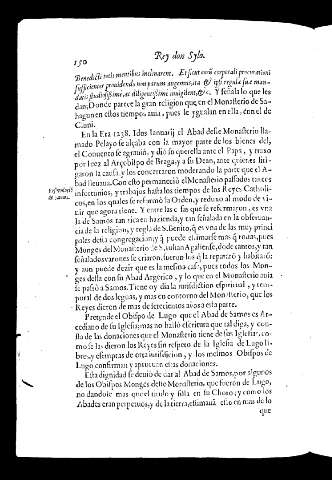 150 Rey don Sylo.
Benedicti totis mentibus inclinarem. Et sicut corporali procurationi
sufficienter providendo temporum augmenta, & ipsi regula sua man-
datis studiosissime, ac diligentissime invigilent, &c. Y señala lo que les
dan. Donde parece la gran religion que en el Monasterio de Sa-
hagun en estos tiempos auia, pues le ygualan en ella, con el de
En la Era 1238. Idos Ianuarij el Abad deste Monasterio lla-
mado Pelayo se alçaua con la mayor parte de los bienes del,
el Conuento se agrauiò, y dio su querella ante el Papa, y puso
por juez al Arçobispo de Braga, y a su Dean, ante quienes liti-
garon la causa, y los concertaron moderando la parte que el A-
bad lleuaua. Con esto permanecio el Monasterio passados tantos
infortunios, y trabajos hasta los tiempos de los Reyes Catholi-
cos, en los quales se reformò la Orden, y reduxo al modo de vi-
uir que agora tiene. Y entre las casas que se reformaron, es vna
la de Samos tan rica en hazienda, y tan señalada en la obseruan-
cia de la religion, y regla de S. Benito, que es vna de las muy princi-
pales desta congregacion, y puede estimarse mas que todas, pues
Monges del Monasterio de S. Iulian Agaliense, donde santos, y tan
señalados varones se criaron, fueron los que la repararon y habitaron:
y aun puede dezir que es la misma casa, pues todos los Mon-
ges della con su Abad Argerico, y lo que en el Monasterio auia
se passò a Samos. Tiene oy dia la jurisdicion espiritual, y tem-
poral de dos leguas, y mas en contorno del Monasterio, que los
Reyes dieron de mas de seiscientos años a esta parte.
Pretende el Obispo de Lugo que el Abad de Samos es Ar-
cediano de su Iglesia: mas no hallo escritura que tal diga, y con-
sta de las donaciones que el Monasterio tiene de sus Iglesias, co-
mo se las dieron los Reyes sin respeto de la Iglesia de Lugo li-
bres, y esemptas de otra jurisdicion, y los mesmos Obispos de
Lugo confirman y aprueuan estas donaciones.
Esta dignidad se deuio de dar al Abad de Samos, por algunos
de los Obispos Monges deste Monasterio, que fueron de Lugo,
no dandole mas que el titulo y silla en su Choro, y como los
Abades eran perpetuos, y de la tierra, estimauã esto en mas de lo
que